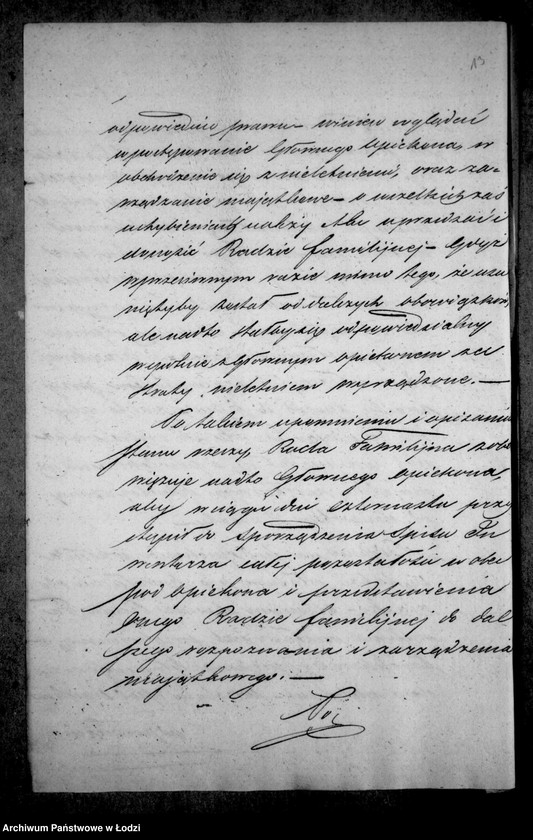 13
odpowiednio prawu – winien wglądać
w postępowanie Głównego Opiekuna, w
obchodzeniu się z nieletniemi, oraz za-
rządzanie majątkowe – o wszelkich zaś
uchybieniach należy Mu uprzedzać i
donosić Radzie familijnej – Gdyż
w przeciwnym razie mimo tego, że usu
niętyby został od dalszych obowiązków,
ale nadto stałby się odpowiedzialny
wspólnie z Głównym opiekunem za
straty nieletniem wyrządzone. –
Po takiem upomnieniu i opisaniu
stanu rzeczy Rada Familijna zobo
wiązuje nadto Głównego opiekuna,
aby w ciągu dni czternastu przy
stąpił do sporządzenia Spisu In
wentarza całej pozostałości w obec
pod Opiekuna i przedstawienia
onego Radzie familijnej do dal
szego rozpoznania i zarządzenia
majątkowego. –
Archiwum Państwowe w Łodzi